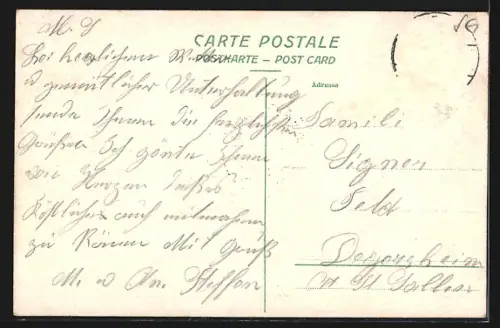 CARTE POSTALE
POSTKARTE – POST CARD
Adresse
M. L
Bei herrlichem
u gemütlicher Unterhaltung
sende Ihnen die herzlichsten
Grüsse Ich gönte Ihnen
von Herzen
Köstliches auch mitmachen
zu Können Mit Gruß
M. u An. Steffen
Famili
Signer
Feld
Degersheim
Kt St Gallen